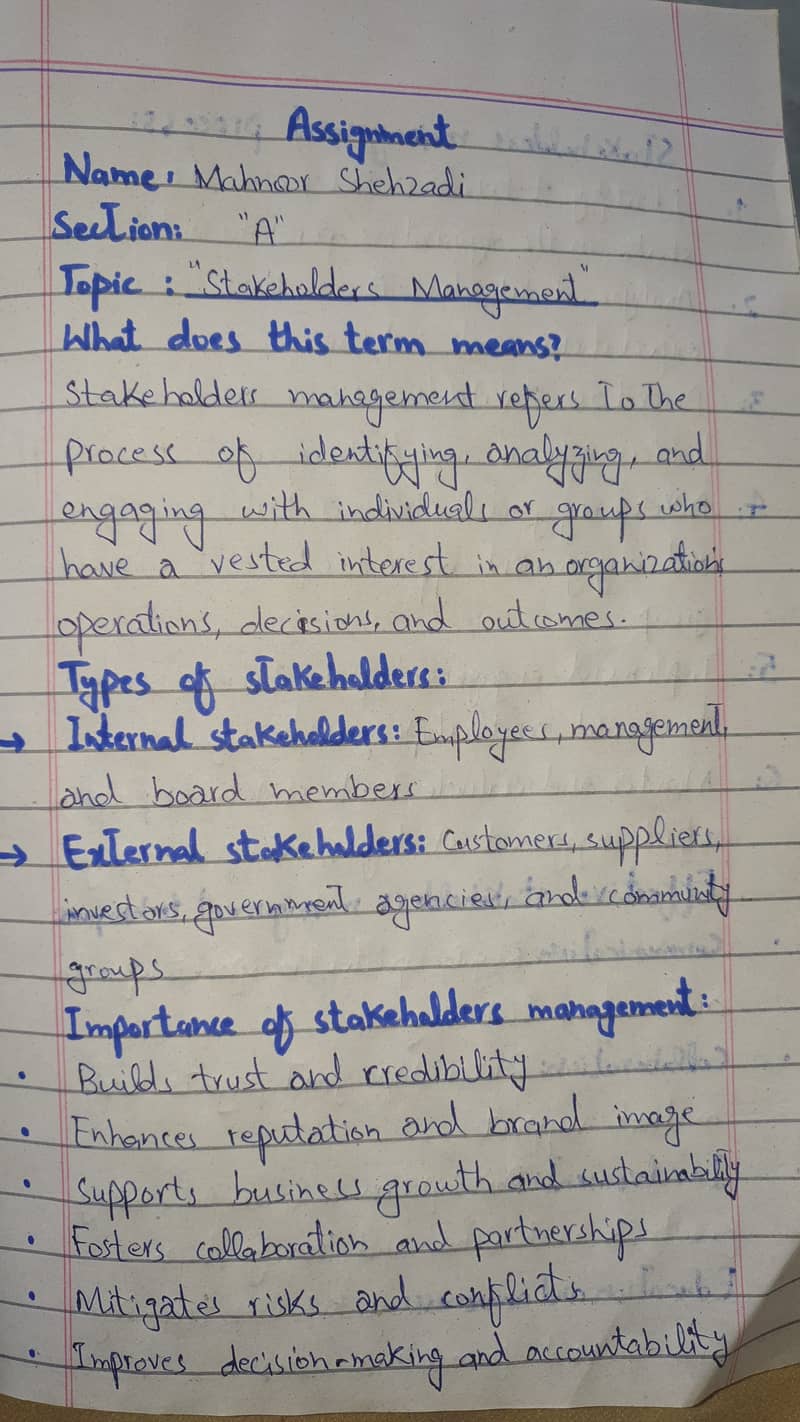 Assignment
Name: Mahnoor Shehzadi
Section: "A"
Topic : "Stakeholders Management"
What does this term means?
Stakeholders management refers To The
process of identifying, analyzing, and
engaging with individuals or groups who
have a vested interest in an organization's
operations, decisions, and outcomes.
Types of stakeholders:
→ Internal stakeholders: Employees, management,
and board members
→ External stakeholders: Customers, suppliers,
investors, government agencies, and community
groups
Importance of stakeholders management:
• Builds trust and credibility
• Enhances reputation and brand image
• Supports business growth and sustainability
• Fosters collaboration and partnerships
• Mitigates risks and conflicts
• Improves decision-making and accountability